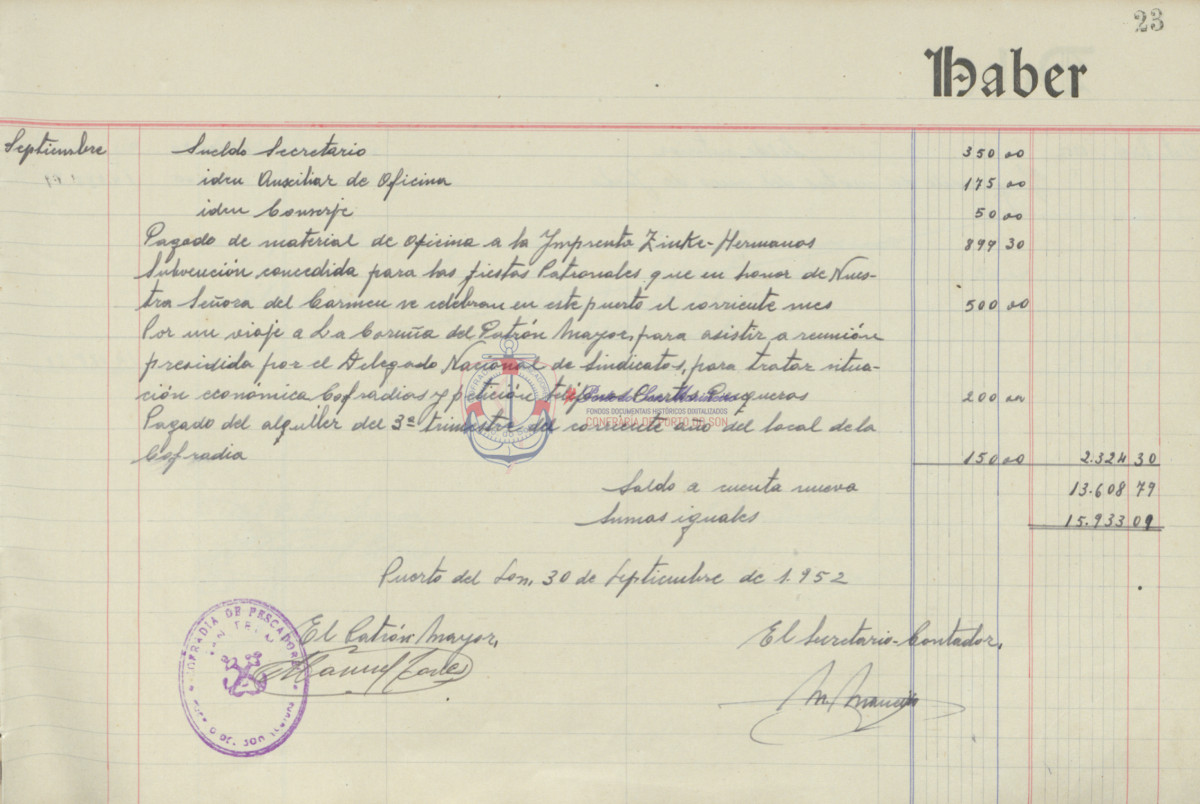 23
Haber
Septiembre Sueldo Secretario 350 00
idem Auxiliar de Oficina 175 00
idem Conserje 50 00
Pagado de material de oficina a la Imprenta Zinke-Hermanos 899 30
Subvención concedida para las fiestas Patronales que en honor de Nues-
tra Señora del Carmen se celebran en este puerto el corriente mes 500 00
Por un viaje a La Coruña del Patrón Mayor, para asistir a reunión
presidida por el Delegado Nacional de Sindicatos, para tratar situa-
ción económica Cofradias y petición Puertos Pesqueros 200 00
FONDOS DOCUMENTAIS HISTÓRICOS DIXITALIZADOS
CONFRARÍA DE PORTO DO SON
Pagado del alquiler del 3º trimestre del corriente año del local de la
Cofradia 150 00 2.324 30
Saldo a cuenta nueva 13.608 79
Sumas iguales 15.933 09
Puerto del Son, 30 de Septiembre de 1.952
El Patrón Mayor, El Secretario-Contador,
COFRADIA DE PESCADORES
SAN TELMO
Manuel